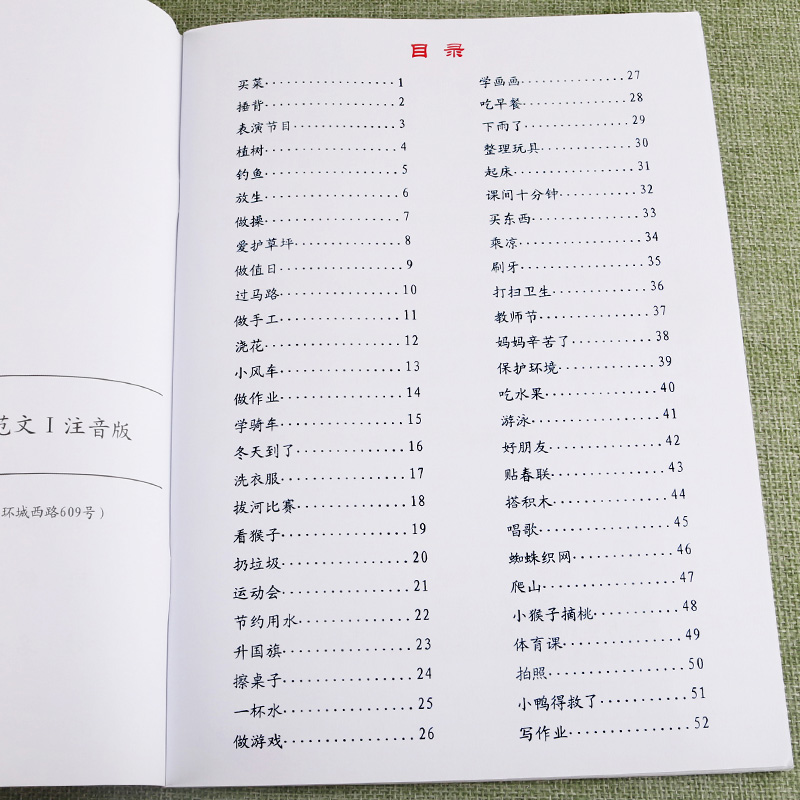 范文 I 注音版
环城西路609号）
目录
买菜·················1
捶背·················2
表演节目··············3
植树·················4
钓鱼·················5
放生·················6
做操·················7
爱护草坪··············8
做值日················9
过马路················10
做手工················11
浇花·················12
小风车················13
做作业················14
学骑车················15
冬天到了··············16
洗衣服················17
拔河比赛··············18
看猴子················19
扔垃圾················20
运动会················21
节约用水··············22
升国旗················23
擦桌子················24
一杯水················25
做游戏················26
学画画················27
吃早餐················28
下雨了················29
整理玩具··············30
起床·················31
课间十分钟············32
买东西················33
乘凉·················34
刷牙·················35
打扫卫生··············36
教师节················37
妈妈辛苦了············38
保护环境··············39
吃水果················40
游泳·················41
好朋友················42
贴春联················43
搭积木················44
唱歌·················45
蜘蛛织网··············46
爬山·················47
小猴子摘桃············48
体育课················49
拍照·················50
小鸭得救了············51
写作业················52